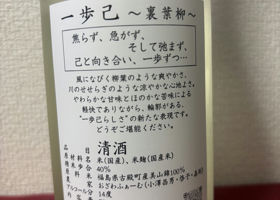 一歩己 ～裏葉柳～
焦らず、急がず、
そして弛まず、
己と向き合い、一歩ずつ…
風になびく柳葉のような爽やかさ、
川のせせらぎのような涼やかな心地。
やわらかな甘味とほのかな苦味による
軽快でありながら、輪郭がある、
“一歩己らしさ”の新たな表現です。
どうぞご堪能ください。
品目 清酒
原材料名 米(国産)、米麹(国産米)
精米歩合 40%
原料米 福島県古殿町産美山錦100%
農家 おざわふぁーむ(小澤昌男・
アルコール分 14度